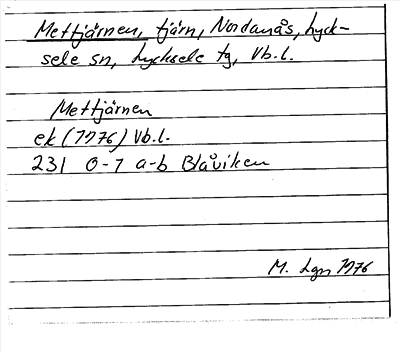 Mettjärnen, tjärn, Nordanås, Lyck-
sele sn, Lycksele tg, Vb.l.
Mettjärnen
ek (1976) Vb.l.
231 0-1 a-b Blåviken
M. Lgn 1976